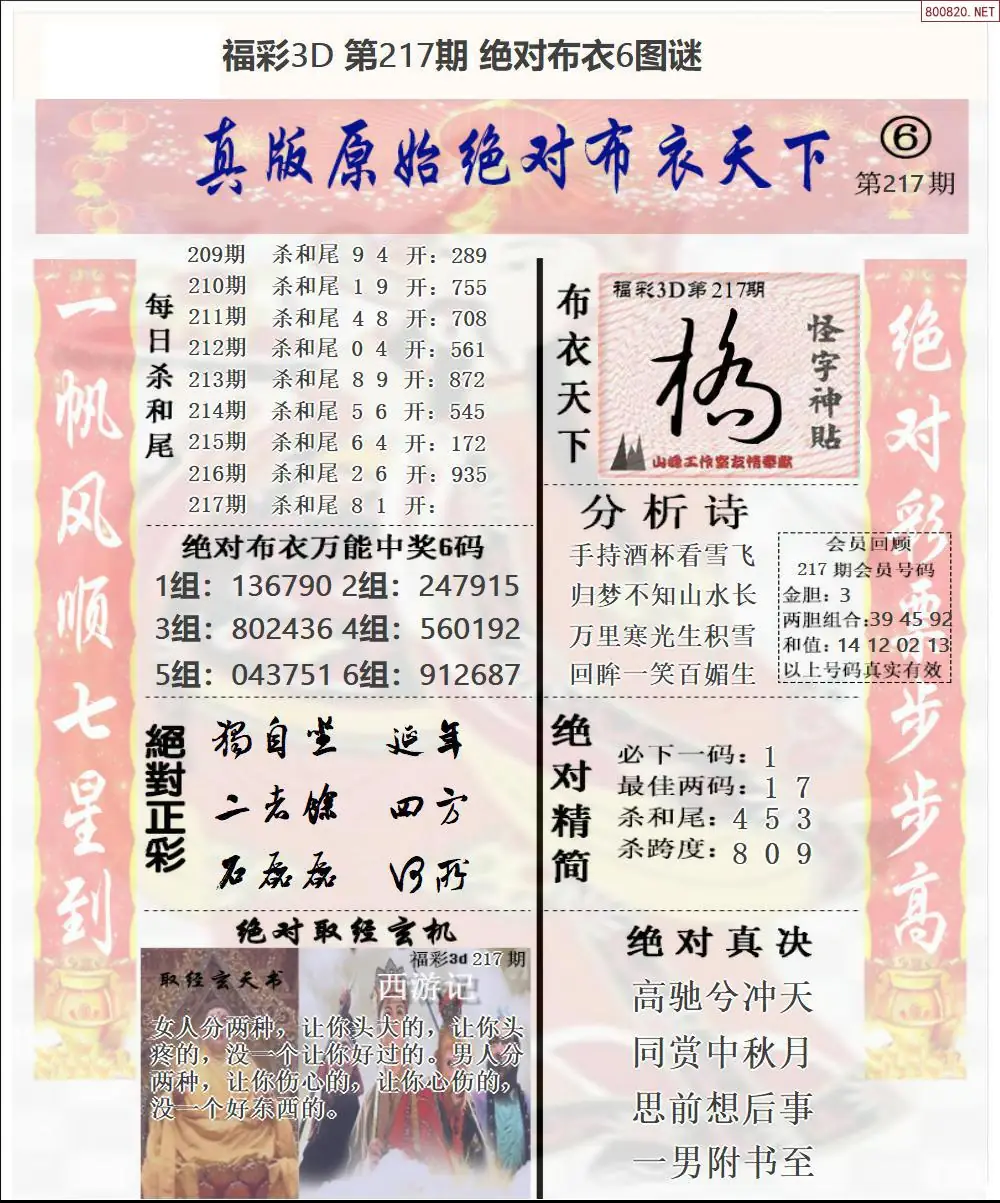 800820.NET
福彩3D 第217期 绝对布衣6图谜
真版原始绝对布衣天下
⑥
第217期
一帆风顺七星到
每日杀和尾
209期 杀和尾 9 4 开：289
210期 杀和尾 1 9 开：755
211期 杀和尾 4 8 开：708
212期 杀和尾 0 4 开：561
213期 杀和尾 8 9 开：872
214期 杀和尾 5 6 开：545
215期 杀和尾 6 4 开：172
216期 杀和尾 2 6 开：935
217期 杀和尾 8 1 开：
绝对布衣万能中奖6码
1组：136790 2组：247915
3组：802436 4组：560192
5组：043751 6组：912687
絕對正彩
獨自坐 延年
二老馀 四方
石磊磊 河所
绝对取经玄机
福彩3d 217期
取经玄天书
西游记
女人分两种，让你头大的，让你头
疼的，没一个让你好过的。男人分
两种，让你伤心的，让你心伤的，
没一个好东西的。
布衣天下
福彩3D第217期
橋
怪字神貼
山峰工作室友情奉献
分析诗
手持酒杯看雪飞
归梦不知山水长
万里寒光生积雪
回眸一笑百媚生
会员回顾
217 期会员号码
金胆：3
两胆组合:39 45 92
和值：14 12 02 13
以上号码真实有效
绝对精简
必下一码：1
最佳两码：1 7
杀和尾：4 5 3
杀跨度：8 0 9
绝对真决
高驰兮冲天
同赏中秋月
思前想后事
一男附书至
绝对彩票步步高